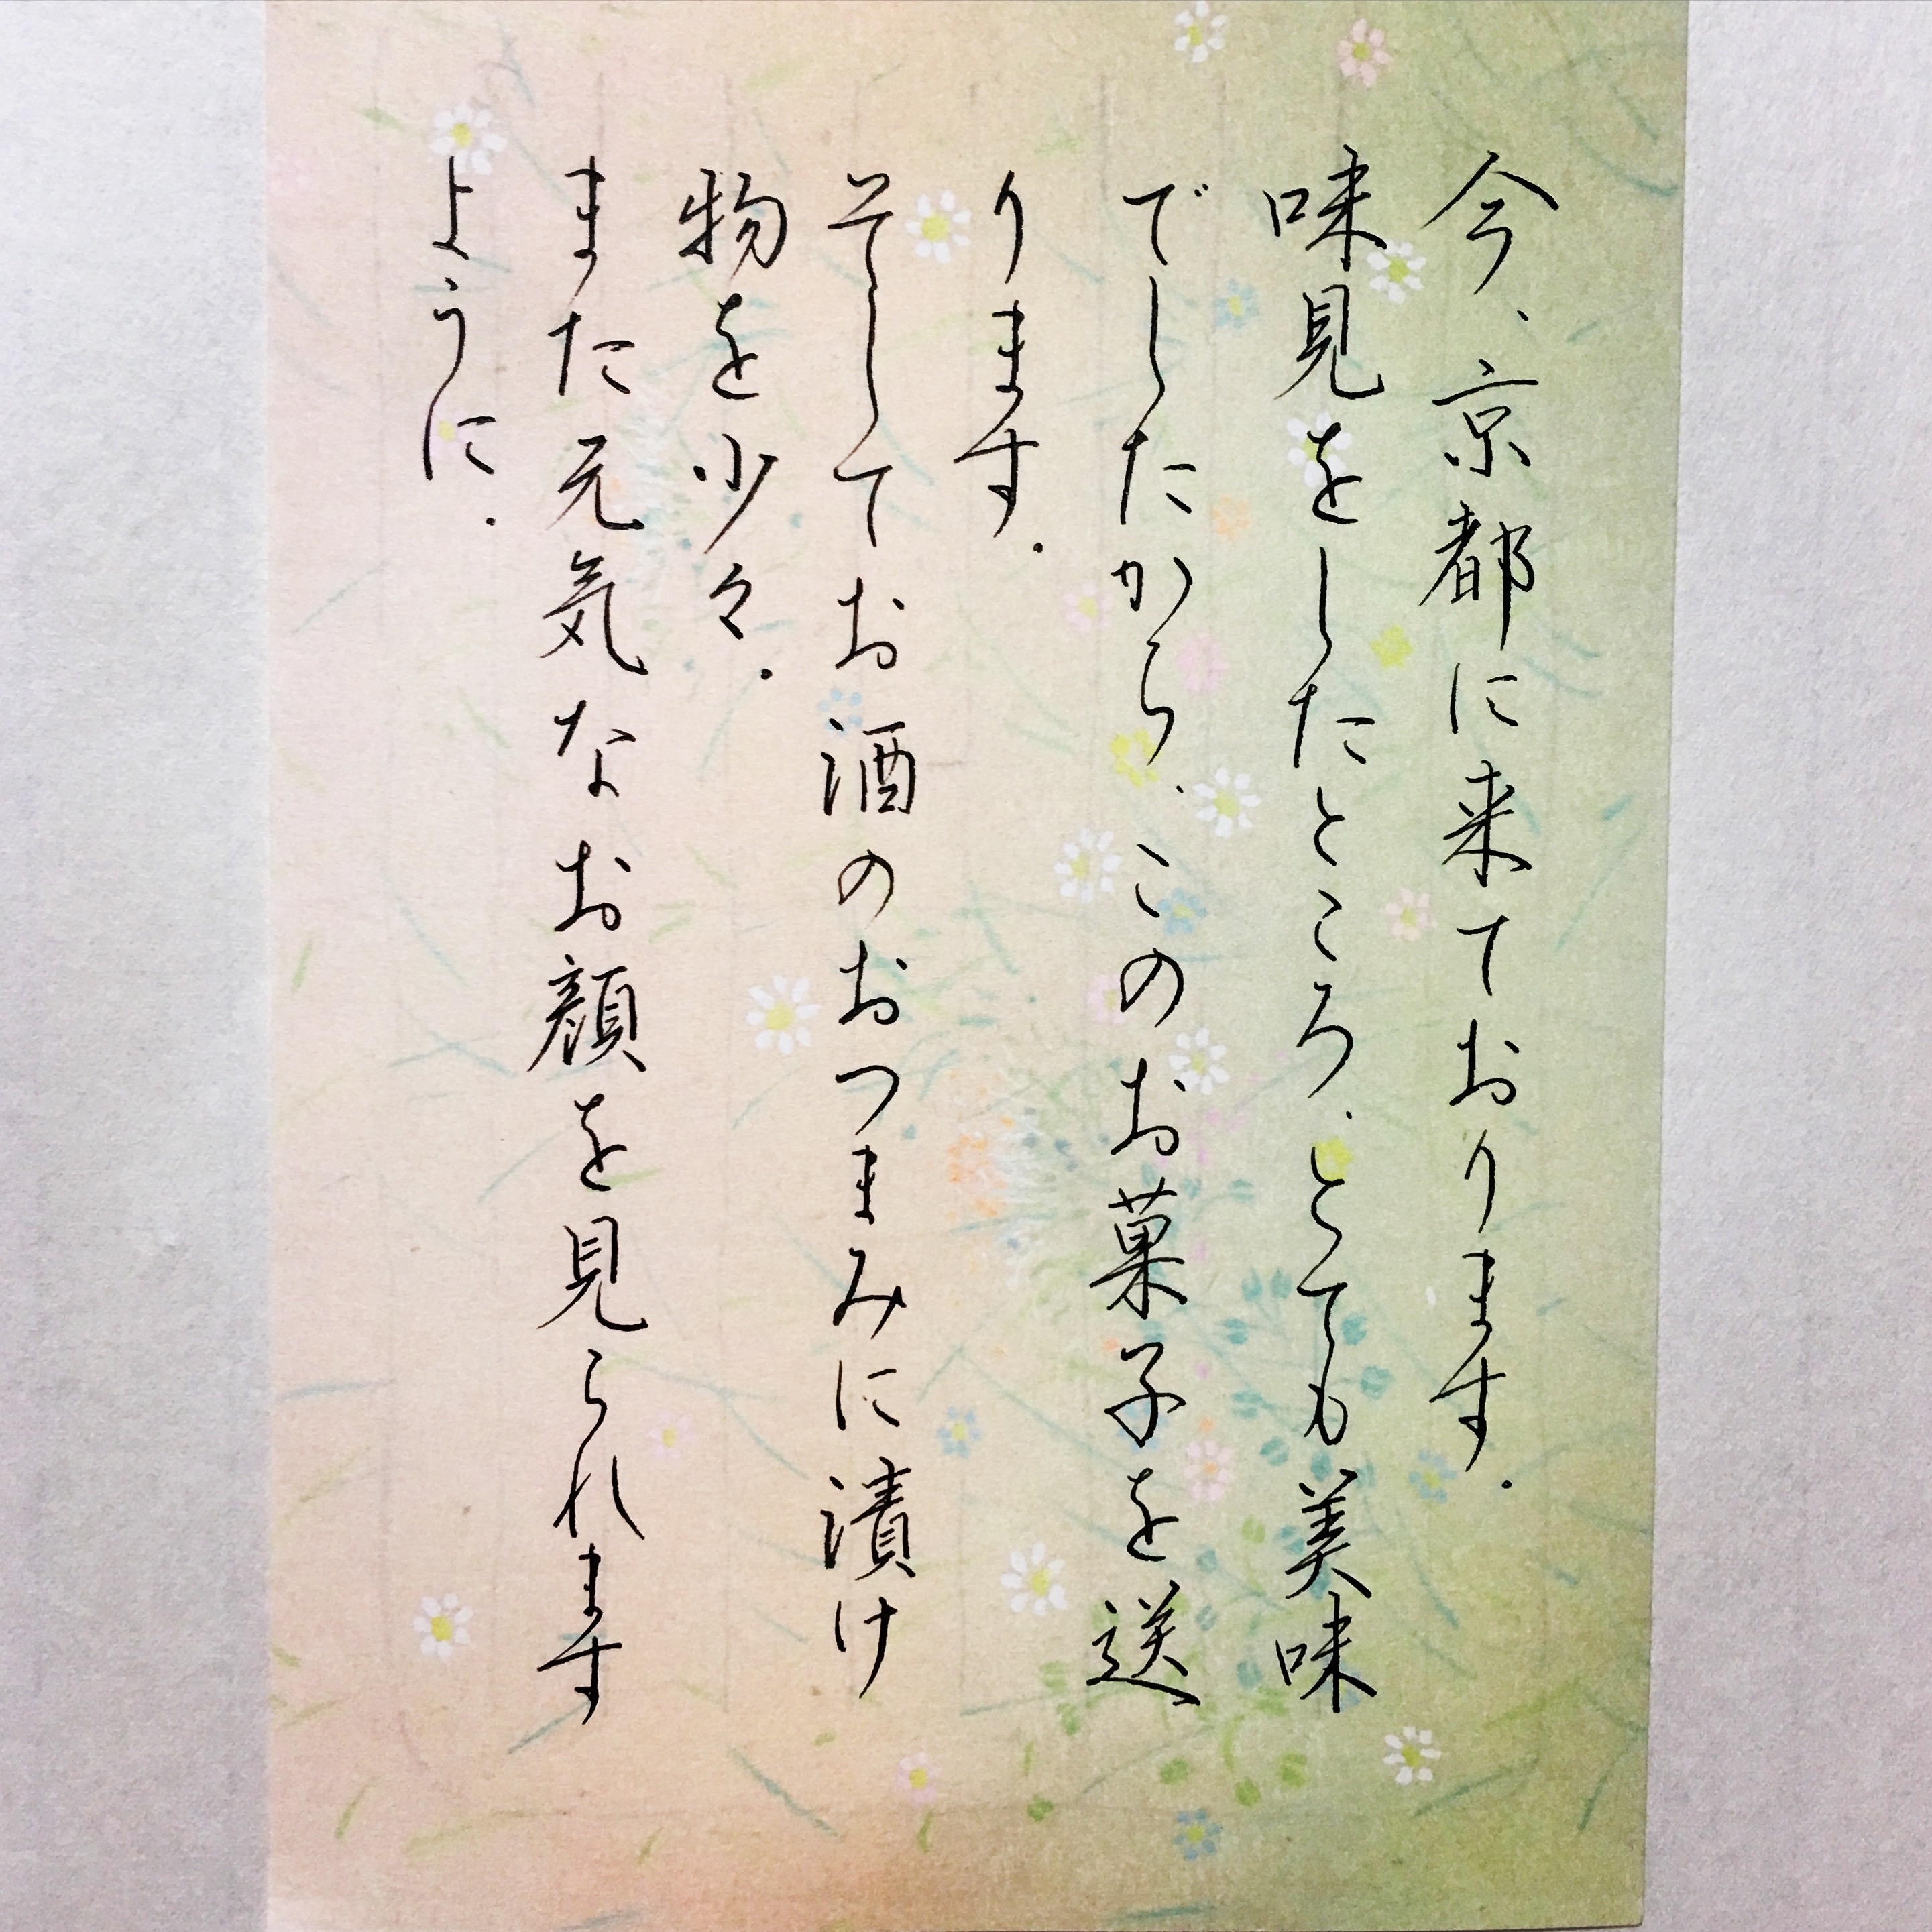 今、京都に来ております.
味見をしたところ、とても美味
でしたから、このお菓子を送
ります.
そしてお酒のおつまみに漬け
物を少々.
また元気なお顔を見られます
ように.